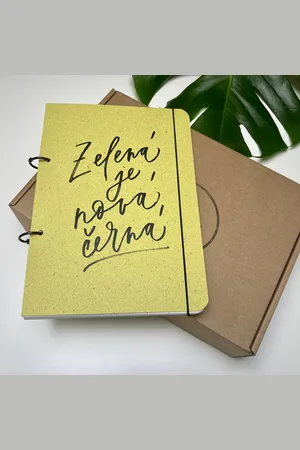 Zelená
je
nová
černá